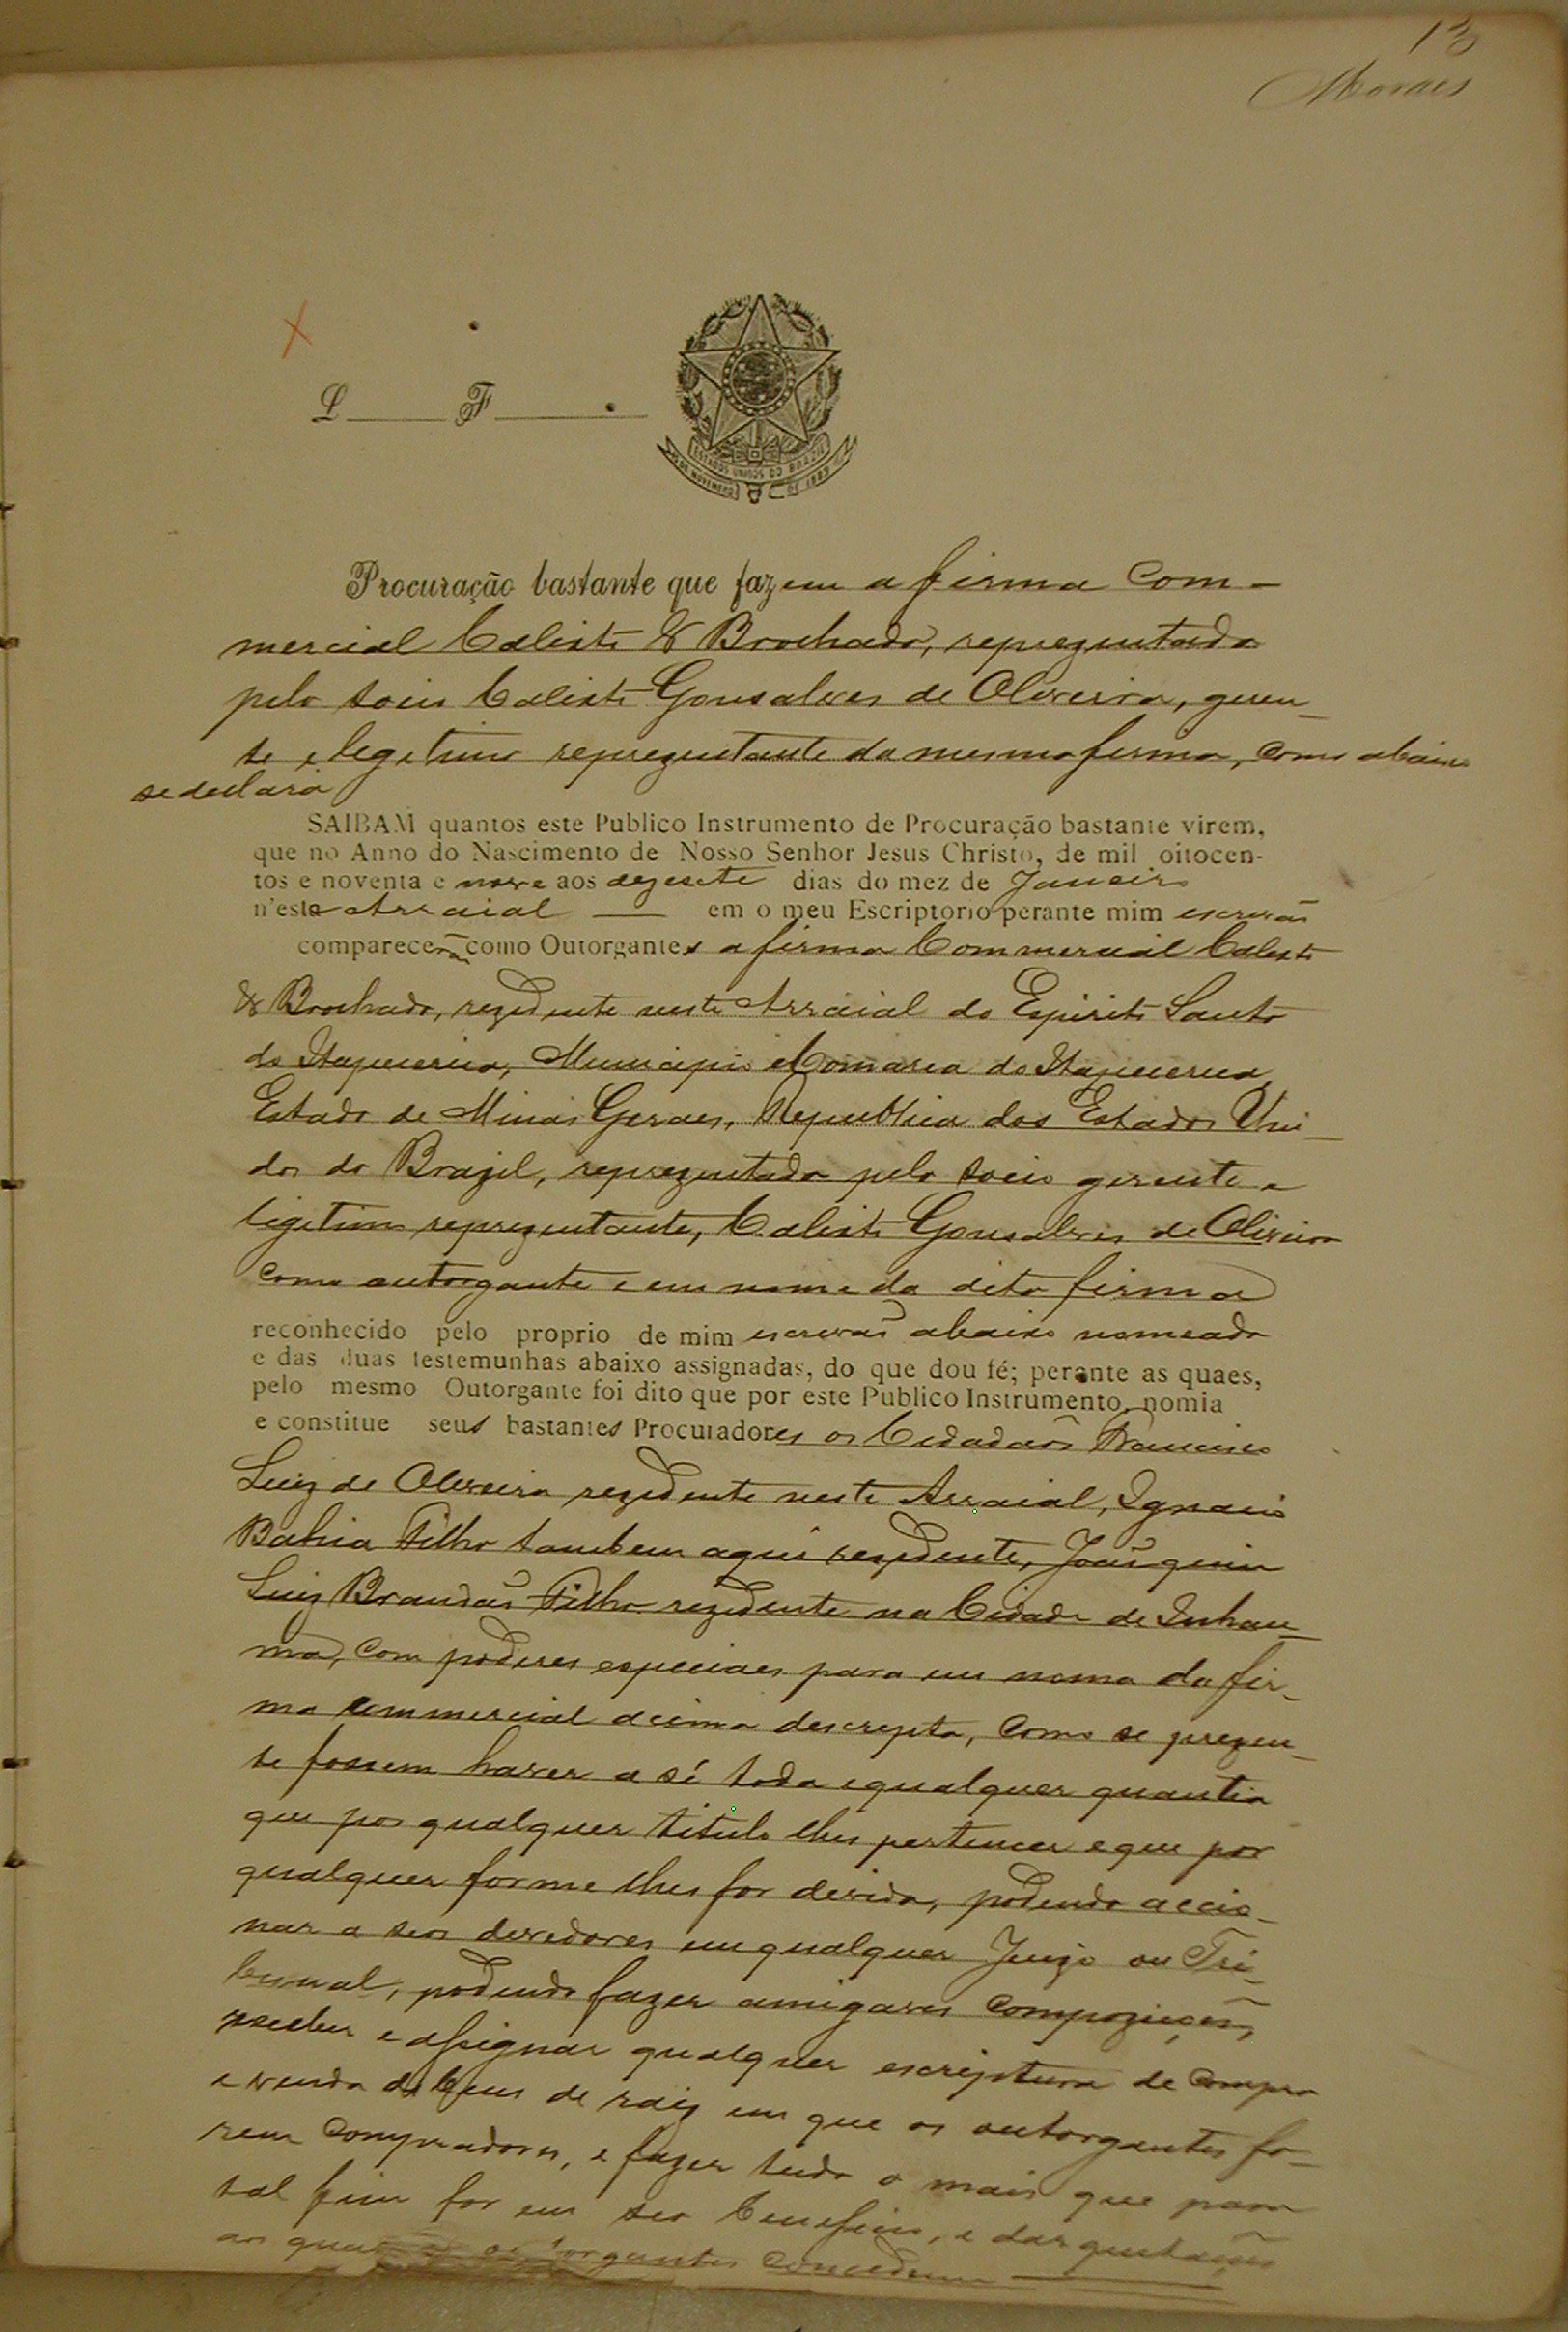 13
Moraes
L F
ESTADOS UNIDOS DO BRAZIL
15 DE NOVEMBRO DE 1889
Procuração bastante que fazem a firma Com-
mercial Calixto & Brochado, reprezentada
pelo socio Calixto Gonsalves de Oliveira, geren-
te e legetimo reprezentante da mesma firma, como abaixo
se declara
SAIBAM quantos este Publico Instrumento de Procuração bastante virem,
que no Anno do Nascimento de Nosso Senhor Jesus Christo, de mil oitocen-
tos e noventa e nove aos dezesete dias do mez de Janeiro
n'este Arraial em o meu Escriptorio perante mim escrivão
comparecerão como Outorgantes a firma Commercial Calixto
& Brochado, rezidente neste Arraial do Espirito Santo
do Itapecerica, Municipio e Comarca do Itapecerica
Estado de Minas Geraes, Republica dos Estados Uni-
dos do Brazil, reprezentada pelo socio gerente e
legetimo reprezentante, Calixto Gonsalves de Oliveira
como outorgante e em nome da dita firma
reconhecido pelo proprio de mim escrivão abaixo nomeado
e das duas testemunhas abaixo assignadas, do que dou fé; perante as quaes,
pelo mesmo Outorgante foi dito que por este Publico Instrumento, nomia
e constitue seus bastantes Procuradores os Cidadãos Francisco
Luiz de Oliveira rezidente neste Arraial, Ignacio
Bahia Filho tambem aqui rezidente, Joaquim
Luiz Brandão Filho rezidente na Cidade de Inhau-
ma, com poderes especiaes para em nome da fir-
ma commercial acima descripta, como se prezen-
te fossem haver a sí toda e qualquer quantia
que por qualquer titulo lhes pertencer e que por
qualquer forme lhes for devida, podendo accio-
nar a seos devedores em qualquer Juizo ou Tri-
bunal, podendo fazer amigaves compozições,
receber e assignar qualquer escriptura de compra
e venda de bens de raiz em que os outorgantes fo-
rem compradores, e fazer tudo o mais que para
tal fim for em seo beneficio, e dar quitações
aos quaes os outorgantes concedem